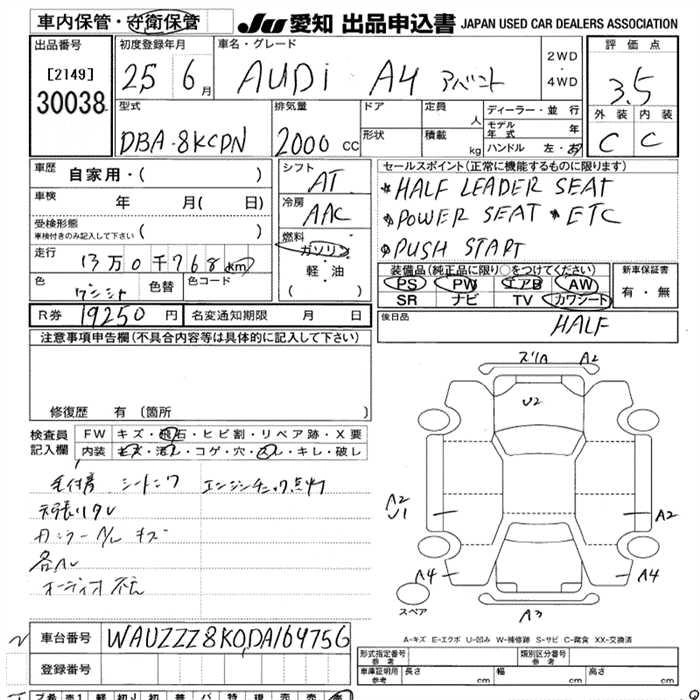 車内保管・守衛保管
JU 愛知 出品申込書 JAPAN USED CAR DEALERS ASSOCIATION
出品番号
[2149]
30038
初度登録年月
25 6月
車名・グレード
AUDi A4 アバント
2WD・4WD
評価点
3.5
外装 内装
C C
型式
DBA-8KCDN
排気量
2000 CC
ドア
形状
定員 人
積載 kg
ディーラー・並行
モデル年式 年
ハンドル 左・右
車歴 自家用・( )
車検 年 月( 日)
受検形態
車検付きのみ記入して下さい ( )
走行 13万0千768km
色 ワンシト 色替 色コード
シフト
AT
冷房
AAC
燃料
ガソリン
軽・油
( )
セールスポイント(正常に機能するものに限ります)
HALF LEADER SEAT
POWER SEAT ETC
PUSH START
装備品(純正品に限り○をつけてください)
PS PW エアB AW
SR ナビ TV カワシート
新車保証書
有・無
R券 19250円 名変通知期限 月 日
後日品
HALF
注意事項申告欄(不具合内容等は具体的に記入して下さい)
修復歴 有 (箇所 )
検査員記入欄
FW キズ・飛石・ヒビ割・リペア跡・X要
内装 キズ・汚レ・コゲ・穴・スレ・キレ・破レ
シートシワ エンジンチェック点灯
天張リタレ
キズ
A2
U2
A2
U1
A2
A4
A4
A3
スペア
A-キズ E-エクボ U-凹み W-補修跡 S-サビ C-腐食 XX-交換済
車台番号 WAUZZZ8K0DA164756
登録番号
形式指定番号
参考
類別区分番号
参考
車庫証明用
参考
長さ cm 幅 cm 高さ cm